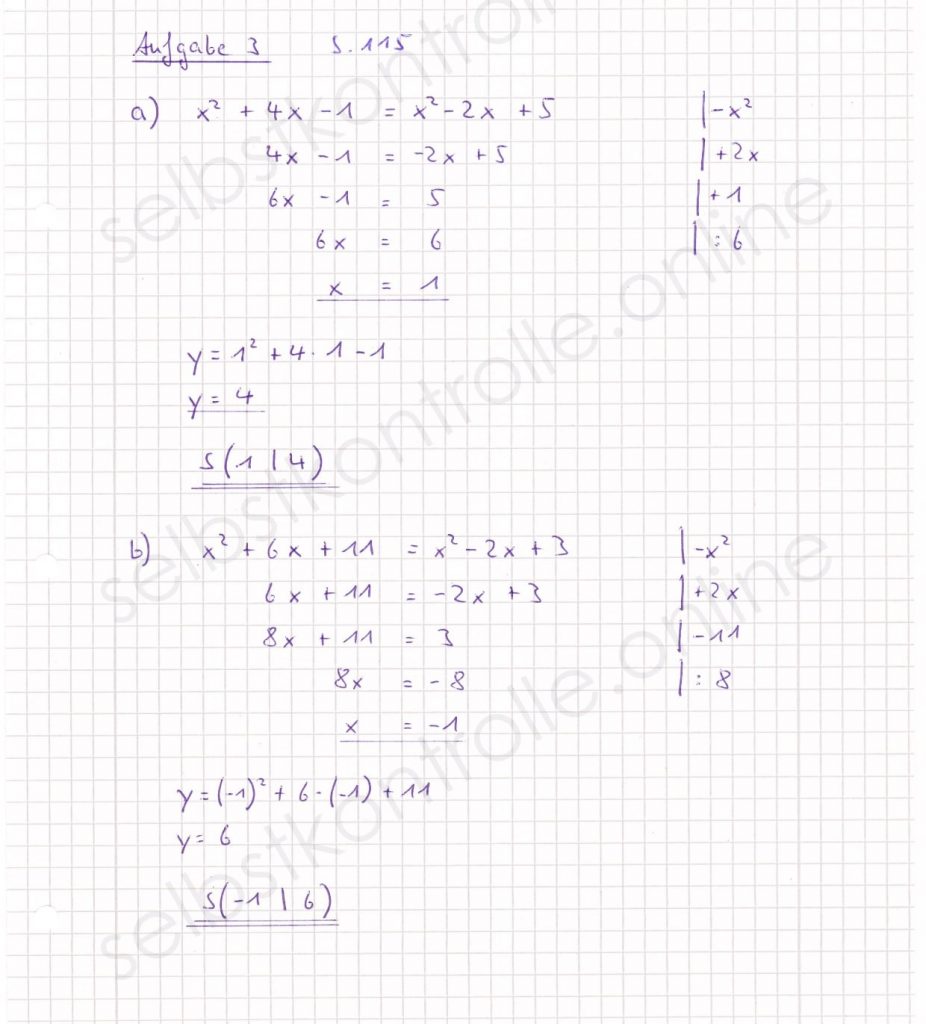 Aufgabe 3 S. 115
a) x² + 4x - 1 = x² - 2x + 5 | -x²
4x - 1 = -2x + 5 | +2x
6x - 1 = 5 | +1
6x = 6 | : 6
x = 1
y = 1² + 4 · 1 - 1
y = 4
S(1 | 4)
b) x² + 6x + 11 = x² - 2x + 3 | -x²
6x + 11 = -2x + 3 | +2x
8x + 11 = 3 | -11
8x = -8 | : 8
x = -1
y = (-1)² + 6 · (-1) + 11
y = 6
S(-1 | 6)
selbstkontrolle.online
selbstkontrolle.online